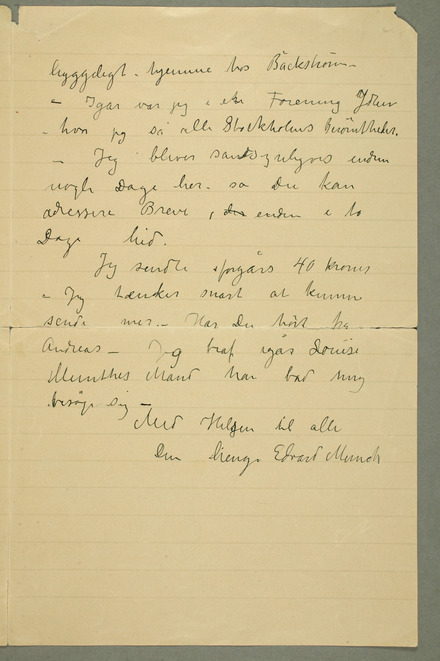 hyggeligt – hjemme hos Bäckström –
– Igår var jeg i en Forening Idun
– hvor jeg så alle Stockholms Berömtheder.
– Jeg bliver sandsynligvis endnu
nogle Dage her – så Du kan
adressere Breve, endnu i to
Dage hid.
Jeg sendte iforgårs 40 kroner
– Jeg tænker snart at kunne
sende mer. – Har Du hört fra
Andreas – Jeg traf igår Louise
Munthes Mand han bad mig
besøge sig –
Med Hilsen til alle
Din hengivne Edvard Munch